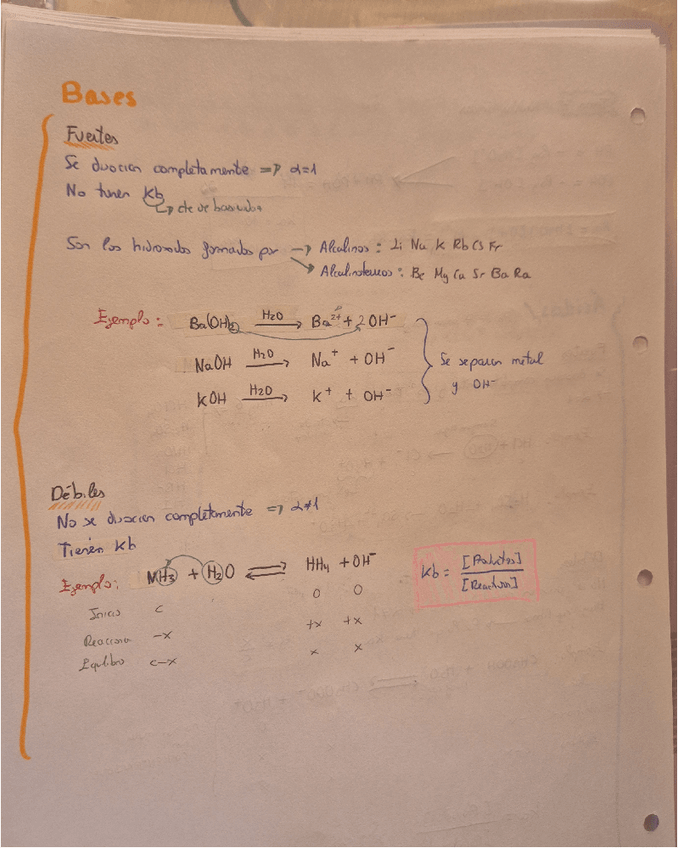 Bases
Fuertes
Se disocian completamente => α=1
No tienen Kb
↳ cte de basicidad
Son los hidróxidos formados por → Alcalinos : Li Na K Rb Cs Fr
→ Alcalinotérreos : Be Mg Ca Sr Ba Ra
Ejemplo : Ba(OH)2 H2O → Ba2+ + 2OH-
NaOH H2O → Na+ + OH-
KOH H2O → K+ + OH-
Se separan metal
y OH-
Débiles
No se disocian completamente => α≠1
Tienen Kb
Ejemplo: NH3 + H2O ⇌ HH4 + OH-
Inicio c 0 0
Reacciona -x +x +x
Equilibrio c-x x x
Kb = [Productos] / [Reactivos]